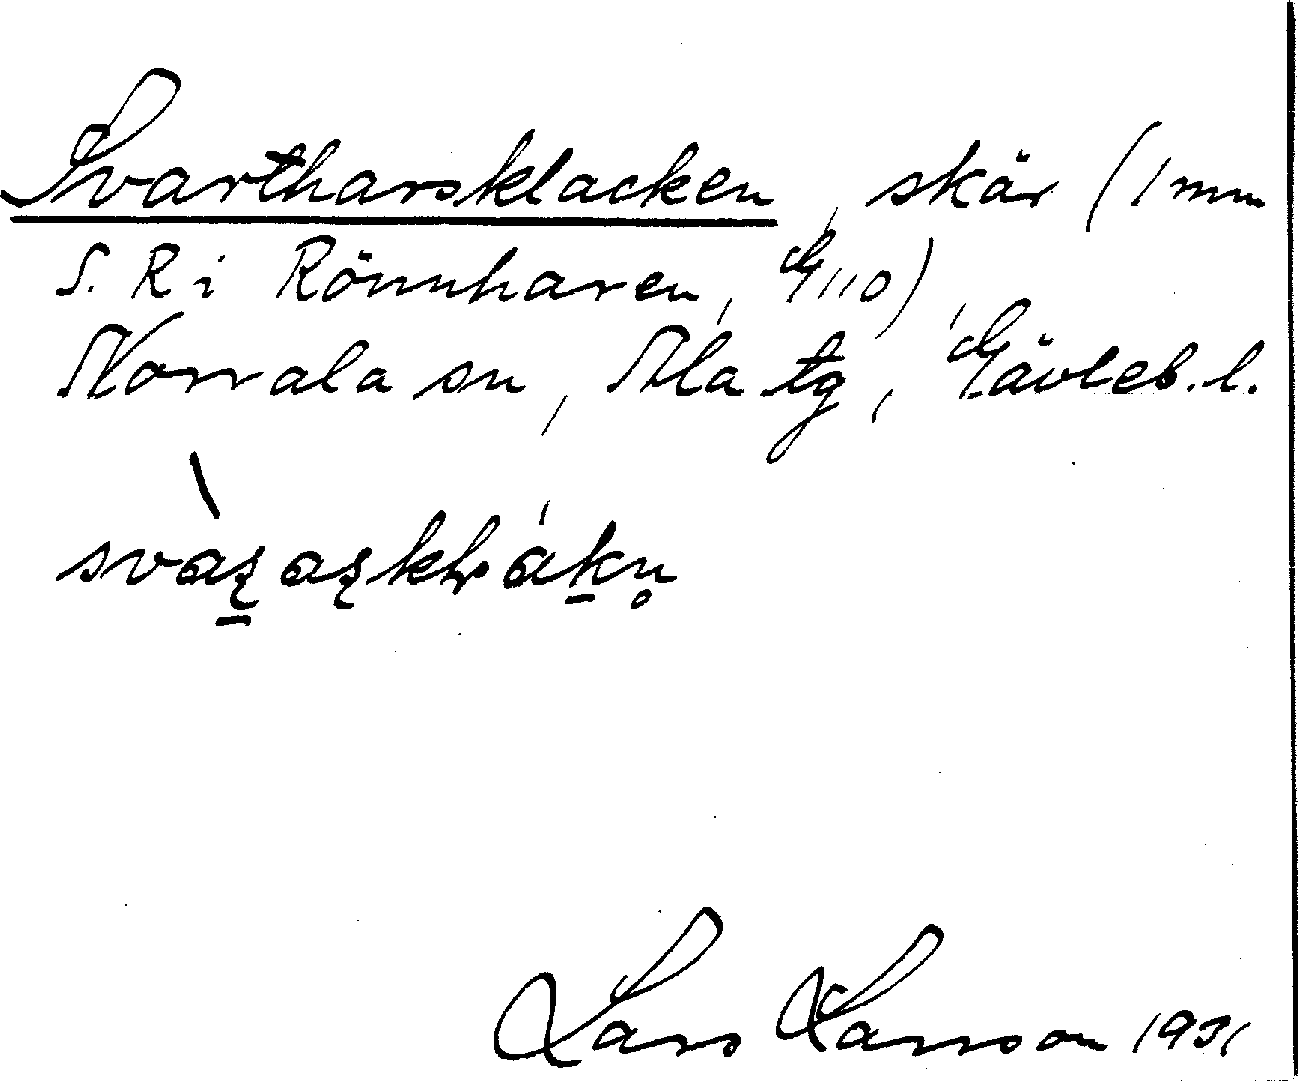 Svartharsklacken, skär (1 mm
S. R i Rönnharen, G 110),
Norrala sn, Ala tg, Gävleb. l.
Lars Larsson 1931